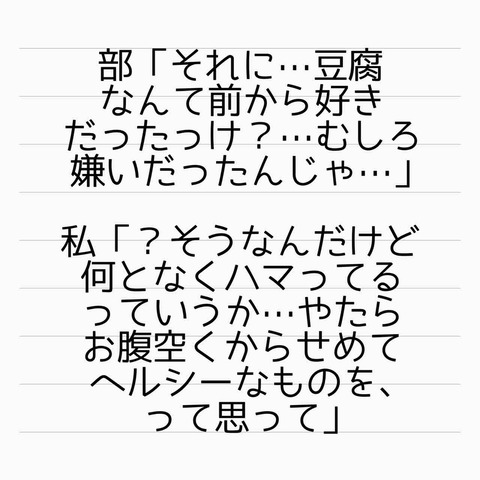 部「それに…豆腐
なんて前から好き
だったっけ？…むしろ
嫌いだったんじゃ…」
私「？そうなんだけど
何となくハマってる
っていうか…やたら
お腹空くからせめて
ヘルシーなものを、
って思って」